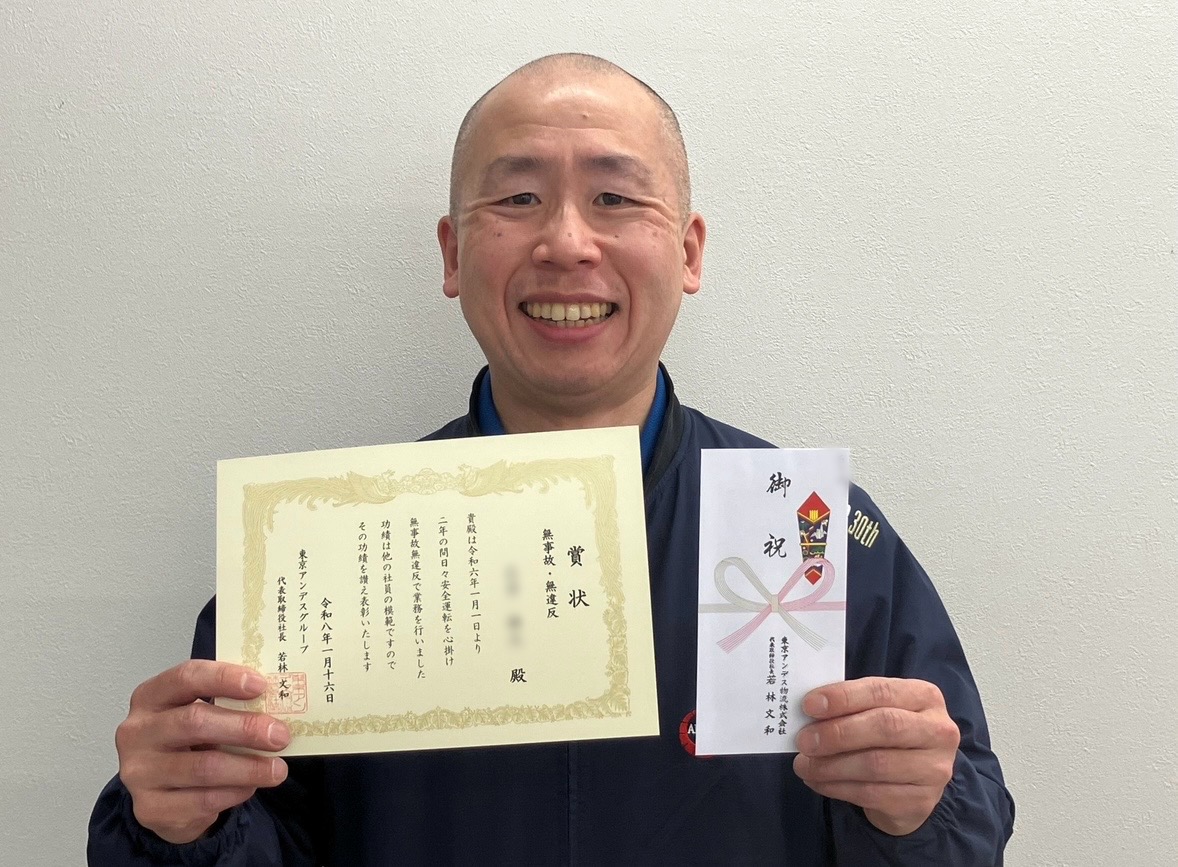 賞状
無事故・無違反
殿
貴殿は令和六年一月一日より
二年の間日々安全運転を心掛け
無事故無違反で業務を行いました
功績は他の社員の模範ですので
その功績を讃え表彰いたします
令和八年一月十六日
東京アンデスグループ
代表取締役社長 若林 文和
御祝
東京アンデス物流株式会社
代表取締役社長 若林文和
30th